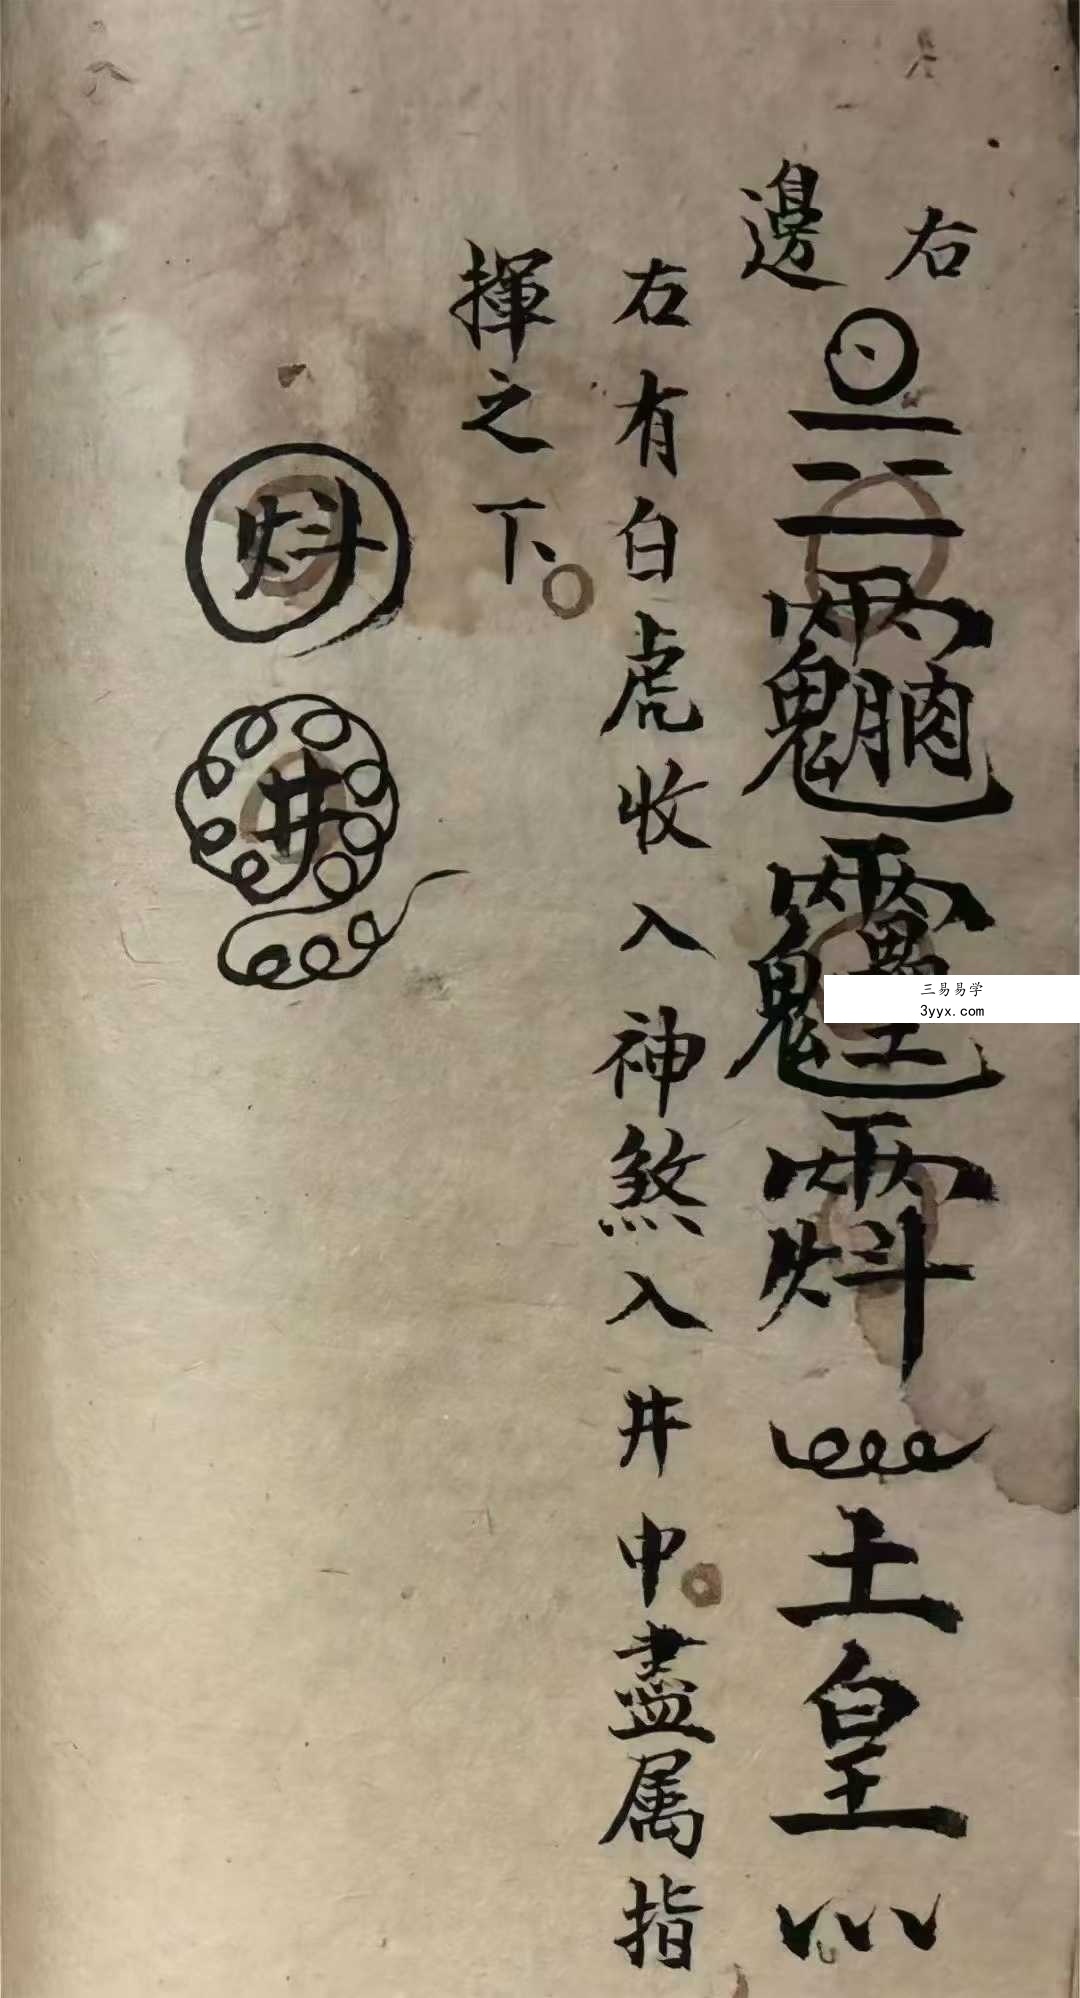 右邊
土皇
右有白虎收入神煞入井中盡属指
揮之下
井
三易易学
3yyx.com